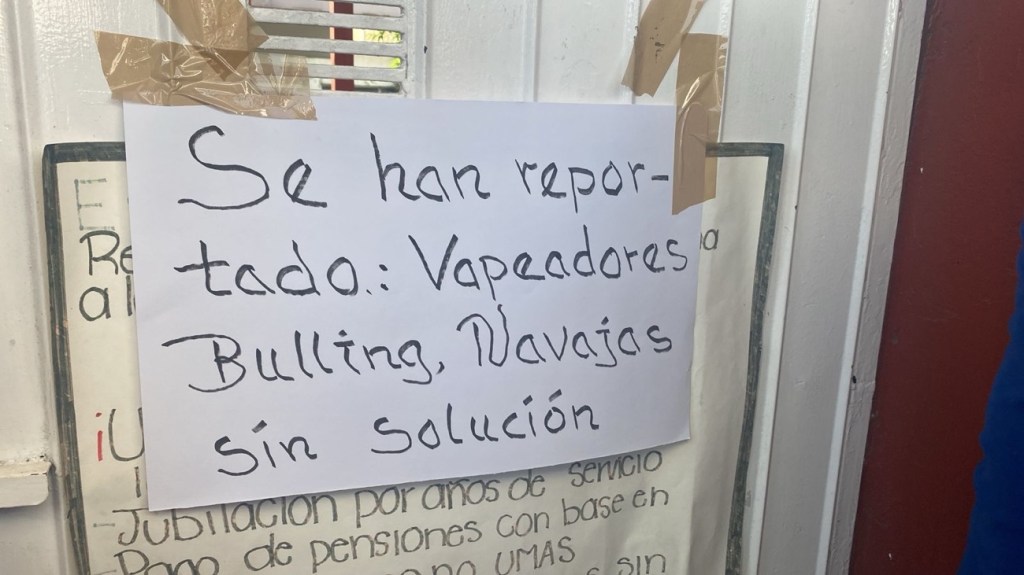 Se han repor-
tado.: Vapeadores
Bulling, Navajas
sin solución
Re
al
¡U
-Jubilación por años de servicio
-Pago de pensiones con base en
no UMAS
sin